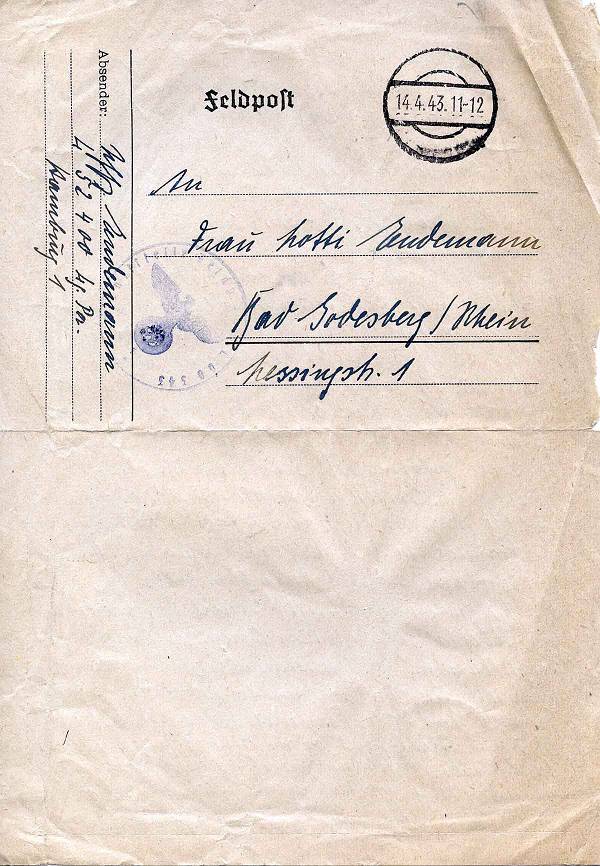 Feldpost
14.4.43.11-12
An
Frau Lotti Endemann
Bad Godesberg/Rhein
Lessingstr. 1
Absender:
Endemann
Hamburg 1